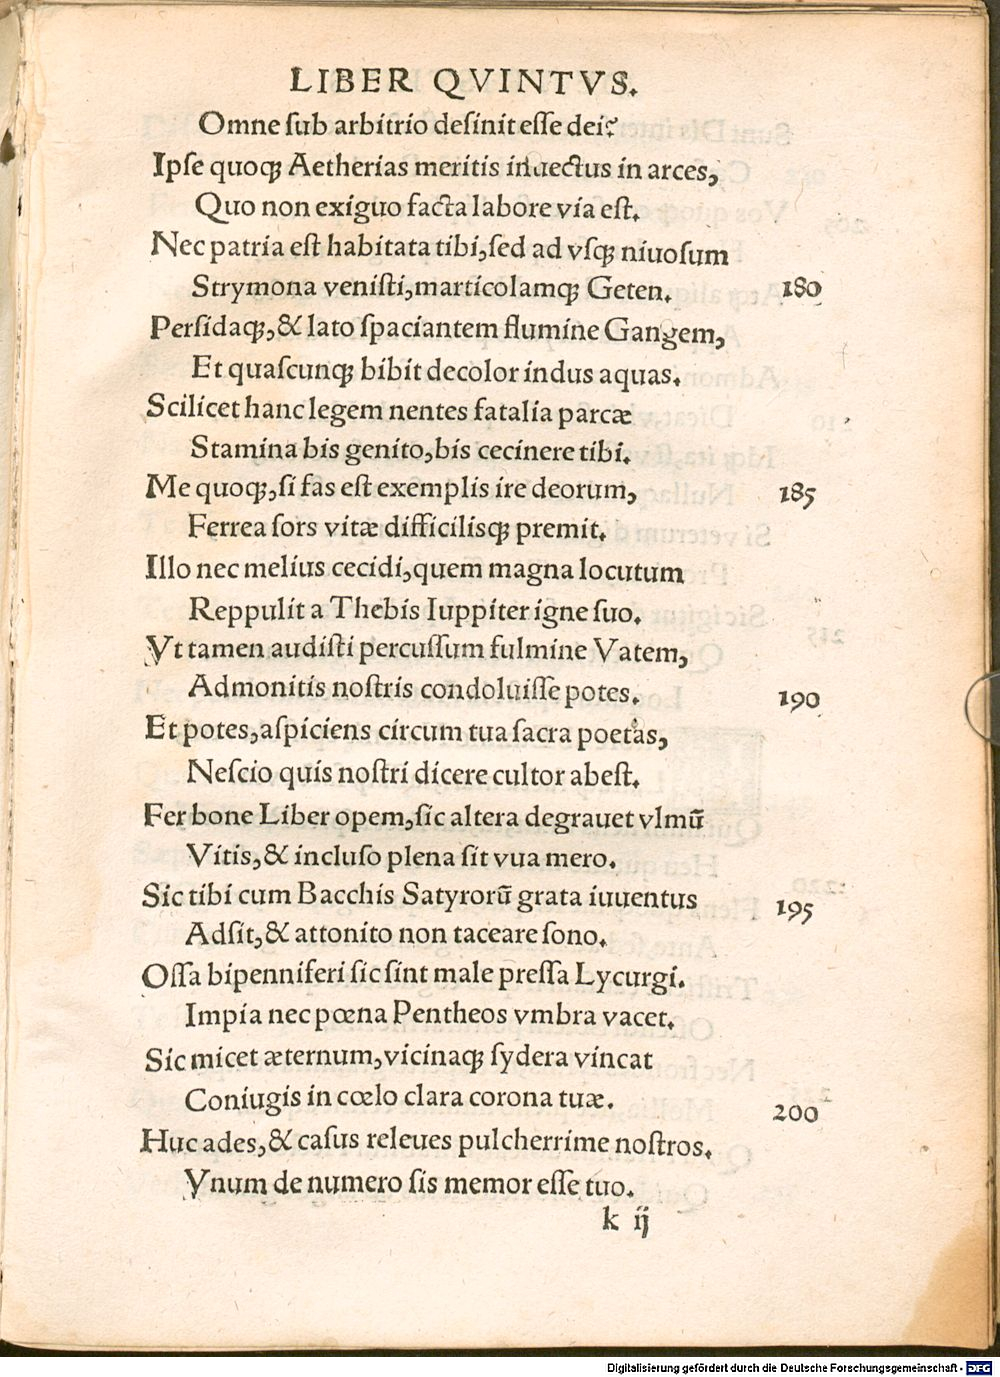 LIBER QVINTVS.
Omne ſub arbitrio deſinit eſſe dei?
Ipſe quoqꝫ Aetherias meritis inuectus in arces,
Quo non exiguo facta labore via eſt.
Nec patria eſt habitata tibi, ſed ad vſqꝫ niuoſum
Strymona veniſti, marticolamqꝫ Geten.
180
Perſidaqꝫ, & lato ſpaciantem flumine Gangem,
Et quaſcunqꝫ bibit decolor indus aquas.
Scilicet hanc legem nentes fatalia parcæ
Stamina bis genito, bis cecinere tibi.
Me quoqꝫ, ſi fas eſt exemplis ire deorum,
185
Ferrea ſors vitæ difficilisqꝫ premit.
Illo nec melius cecidi, quem magna locutum
Reppulit a Thebis Iuppiter igne ſuo.
Vt tamen audiſti percuſſum fulmine Vatem,
Admonitis noſtris condoluiſſe potes.
190
Et potes, aſpiciens circum tua ſacra poetas,
Neſcio quis noſtri dicere cultor abeſt.
Fer bone Liber opem, ſic altera degrauet vlmū
Vitis, & incluſo plena ſit vua mero.
Sic tibi cum Bacchis Satyrorū grata iuuentus
195
Adſit, & attonito non taceare ſono.
Oſſa bipenniferi ſic ſint male preſſa Lycurgi.
Impia nec pœna Pentheos vmbra vacet.
Sic micet æternum, vicinaqꝫ ſydera vincat
Coniugis in cœlo clara corona tuæ.
200
Huc ades, & caſus releues pulcherrime noſtros.
Vnum de numero ſis memor eſſe tuo.
k ij
Digitalisierung gefördert durch die Deutsche Forschungsgemeinschaft - DFG